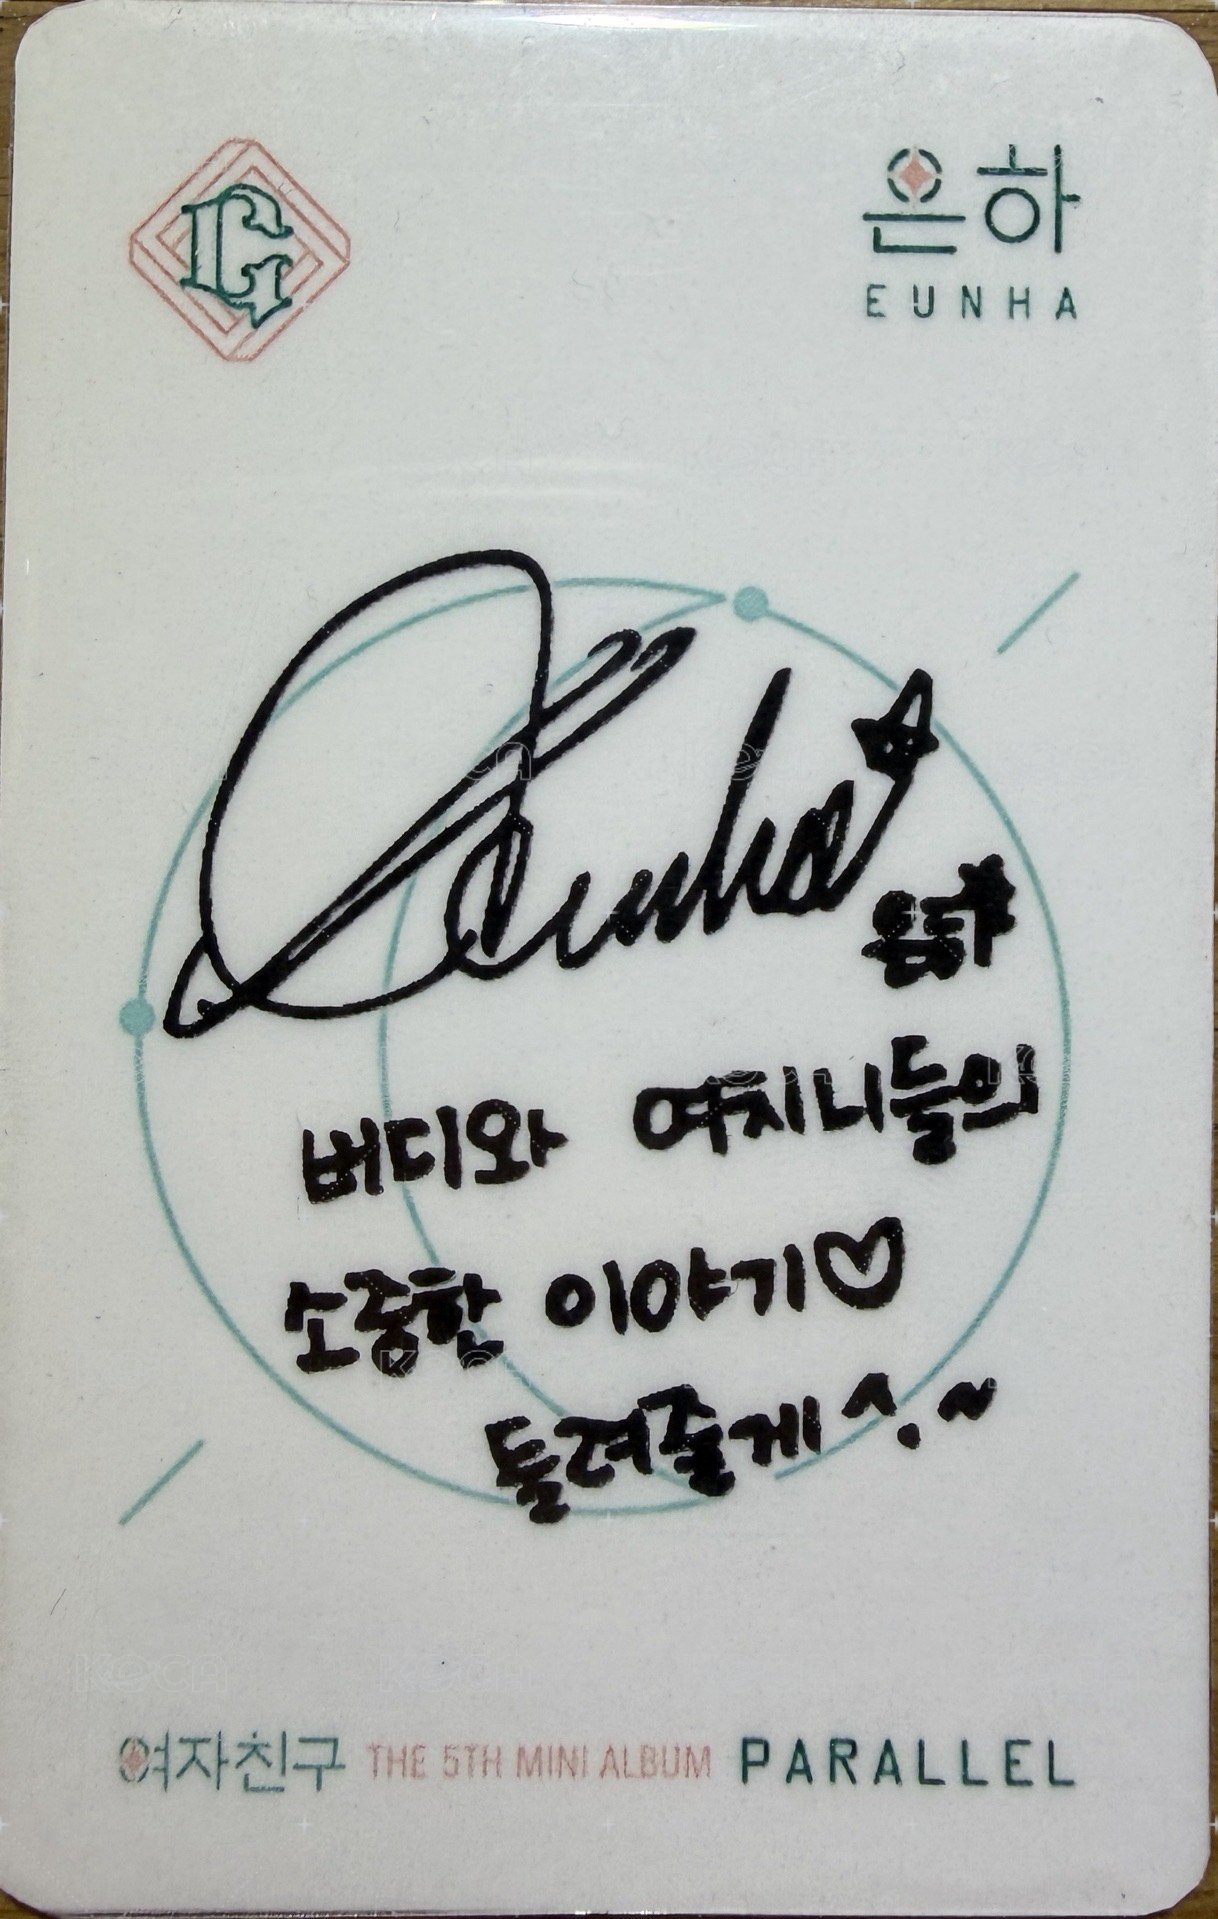 G
은하
EUNHA
Eunha
은하
버디와 여치니들의
소중한 이야기♡
들려줄게 ^.~
여자친구 THE 5TH MINI ALBUM PARALLEL